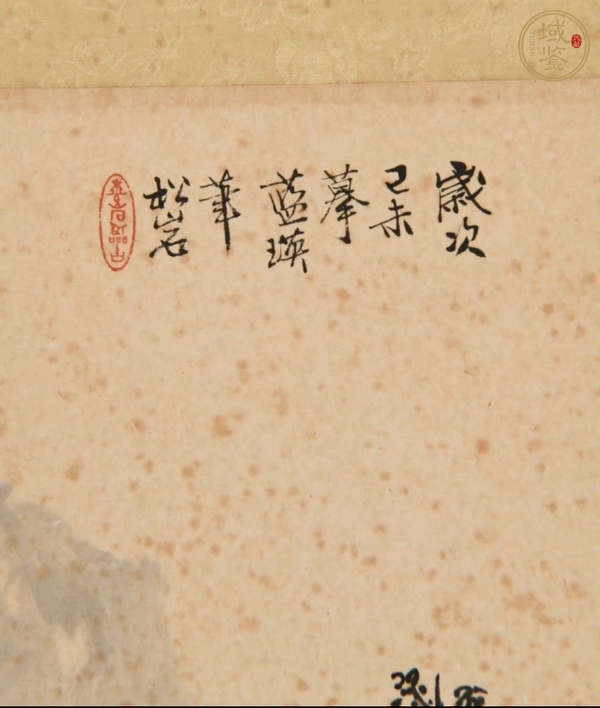 歲次
己未
摹
蓝瑛
筆
松岩
域鉴